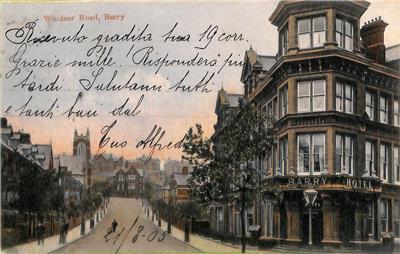 Windsor Road, Barry
Ricevuto gradita tua 19 corr.
Grazie mille. Risponderò più
tardi. Salutami tutti
e tanti baci dal
tuo Alfred
21/8-05
BARRY HOTEL